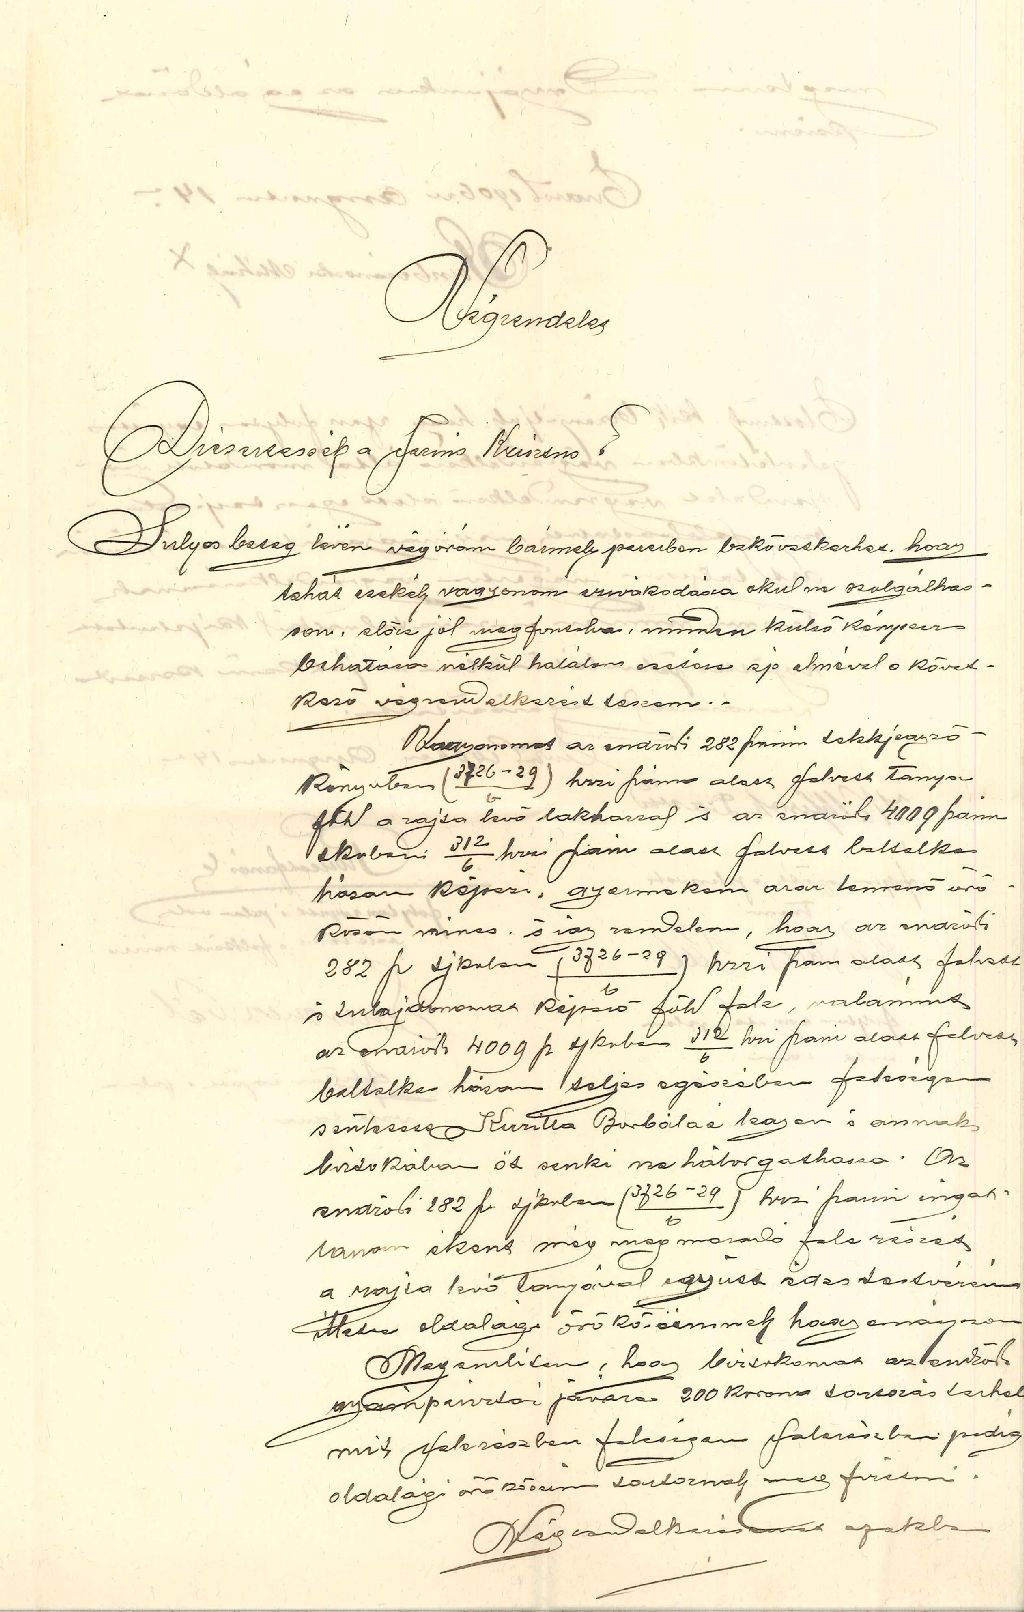 Végrendelet
Dicsértessék a Jézus Krisztus!
Sulyos beteg lévén végórám bármely percben bekövetkezhet, hogy
tehát csekély vagyonom szivakodásra okul ne szolgálhas-
son, előre jól megfontolva, minden külső kényszer
behatása nélkül halálom esetére ép elmével a követ-
kező végrendelkezést teszem.-
Vagyonomat az endrődi 282 számu telekjegyző-
könyvben (3726-29/b) hrzi száma alatt felvett tanya
föld a rajta levő lakházzal s az endrődi 4009 számu
tkvben 312/b hrzi szám alatt felvett beltelkes
házam képezi, gyermekem azaz lemenő örö-
kösöm nincs, s igy rendelem, hogy az endrődi
282 sz tjkvben (3726-29/b) hrzi szám alatt felvett
s tulajdonomat képező föld fele, valamint
az endrődi 4009 sz tjkvben 312/b hrzi szám alatt felvett
beltelkes házam teljes egészében feleségem
született Kuritta Borbáláé legyen s annak
birtokában őt senki ne háborgathassa. Az
endrődi 282 sz tjkvben (3726-29/b) hrzi számu ingat-
lanom ekent még megmaradó fele részét
a rajta levő tanyával együtt édes testvéreim
illetve oldalági örököseimnek hagyományozom
Megemlitem, hogy birtokomat az endrődi
gyámpénztár javára 200 korona tartozás terhel
mit felerészben feleségem felerészben pedig
oldalági örököseim tartoznak meg fizetni.
Végrendelkezésemet ezekben